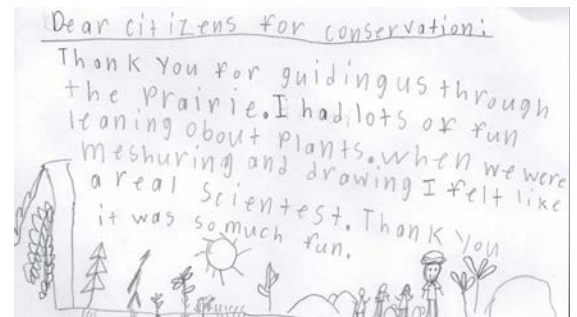 Dear citizens for conservation:
Thank You for guiding us through
the Prairie. I had lots of fun
leaning obout Plants. when we were
meshuring and drawing I felt like
a real scientest. Thank You
it was so much fun.